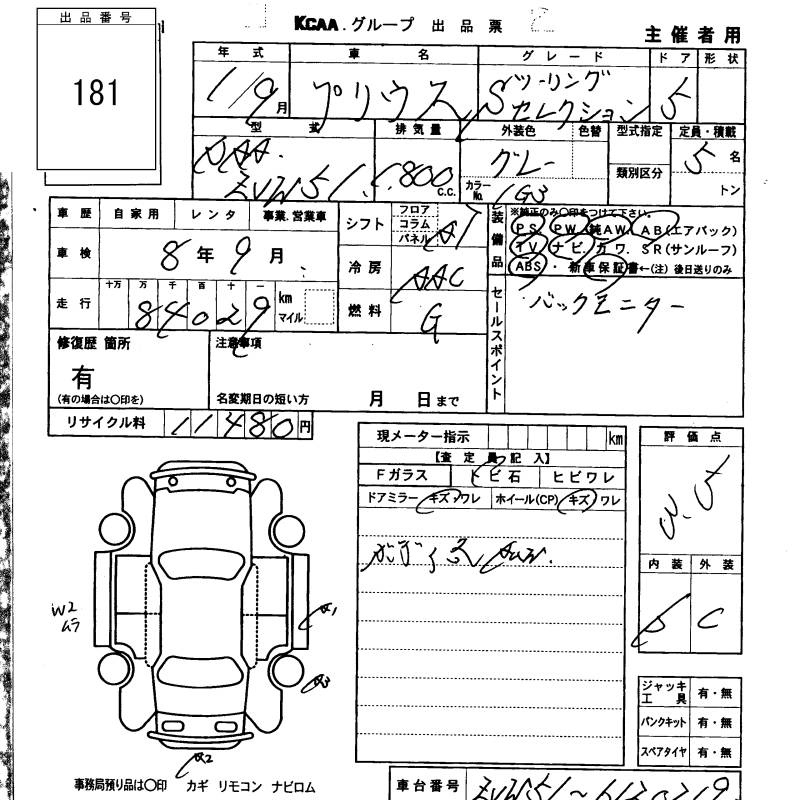 出品番号
181
KCAA.グループ 出品票
主催者用
年式 車名 グレード ドア 形状
1/9月 プリウス Sツーリング
セレクション 5
型式 排気量 外装色 色替 型式指定 定員・積載
DAA. 1,800 グレー 5名
ZVW51 c.c. カラーNo. 1G3 類別区分 トン
車歴 自家用 レンタ 事業.営業車
シフト フロア コラム パネル AT
車検 8年9月
冷房 AAC
走行 十万 万 千 百 十 一
84029 km マイル
燃料 G
装備品 ※純正のみ〇印をつけて下さい。
PS PW 純AW AB(エアバック)
TV ナビ. カワ. SR(サンルーフ)
ABS・新車保証書←(注)後日送りのみ
セールスポイント
バックモニター
修復歴 箇所
有
(有の場合は〇印を)
注意事項
名変期日の短い方 月 日まで
リサイクル料 11480円
現メーター指示 km
【査定員記入】
Fガラス トビ石 ヒビワレ
ドアミラー キズ・ワレ ホイール(CP) キズ・ワレ
評価点
内装 外装
C
W2
ムラ
A1
A3
A2
ジャッキ工具 有・無
パンクキット 有・無
スペアタイヤ 有・無
事務局預り品は〇印 カギ リモコン ナビロム
車台番号 ZVW51～6120219